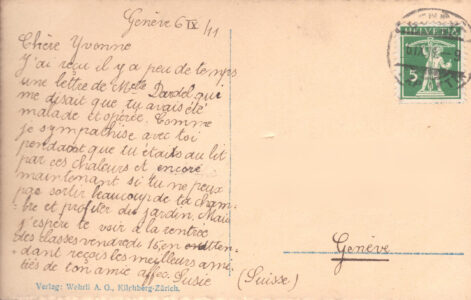 Genève 6 IX /11
Chère Yvonne
J'ai reçu il y a peu de temps
une lettre de Melle Dardel qui
me disait que tu avais été
malade et opérée. Comme
je sympathise avec toi
pendant que tu étais au lit
par ces chaleurs et encore
maintenant si tu ne peux
pas sortir beaucoup de ta cham-
bre et profiter du jardin. Mais
j'espère te voir à la rentrée
des classes vendredi 15, en atten-
dant reçois les meilleurs ami-
tiés de ton amie affec. Susie
Verlag: Wehrli A. G., Kilchberg-Zürich.
HELVETIA
5
Genève
(Suisse)